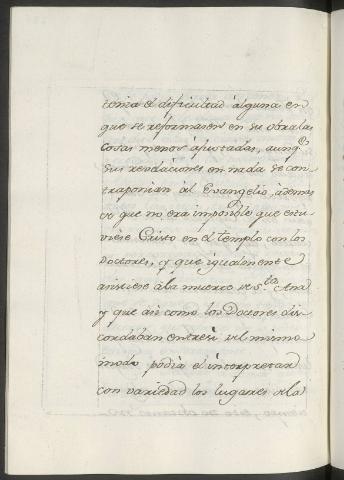 tenia él dificultad álguna en
que se reformasen en su obra las
cosas menos ájustadas, aunq.e
sus revelaciones en nada se con-
traponian ál Evangelio, ádemas
de que no era imposible que estu-
viese Cristo en el templo con los
Doctores, y que igualmente
asistiese ála muerte de S.ta Ana
y que asi como los Doctores dis-
cordaban entre si del mismo
modo podia el interpretar
con variedad los lugares dela